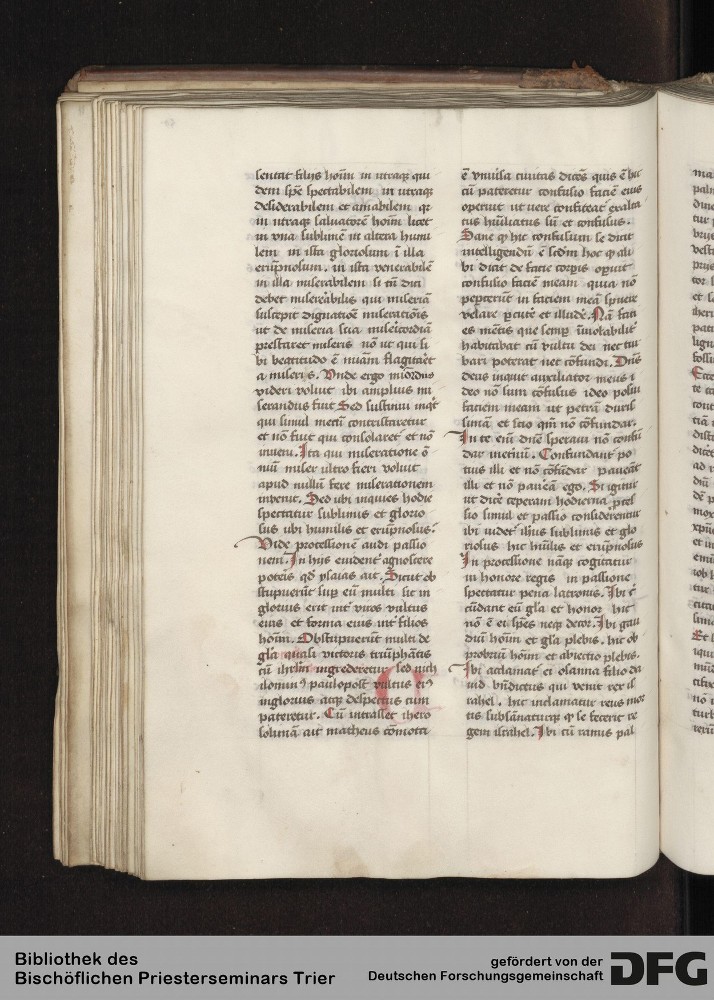 sentat filijs hoīm in utraq; qui
dem spē spectabilem in utraq;
desiderabilem et amabilem qr
in utraq; saluatorē hoīm licet
in vna sublimē in altera humi
lem in ista gloriosum ī illa
erūpnosum. in ista venerabilē
in illa miserabilem si tn̄ dici
debet miserabilis qui miseriā
suscepit dignatiōe miserationis
ut de miseria sua misericordiā
prestaret miseris nō ut qui si
bi beatitudo ē nūiam flagitaret
a miseris. Vnde ergo
videri voluit ibi amplius mi
serandus fuit Sed sustinui inqt
qui simul mecū contristaretur
et nō fuit qui consolaret et nō
inueni. Ita qui miseratione ō
miser ultro fieri voluit
apud nullū fere miserationem
inuenit. Sed ubi inquies hodie
spectatur sublimis et glorio
sus ubi humilis et erūpnosus?
Vide processionē audi passio
nem. In hijs euidenter agnoscere
poteris qd ysaias ait. Sicut ob
stupuerūt sup eū multi sic in
glorius erit int viros vultus
eius et forma eius int filios
hoīm. Obstupuerūt multi de
gla quasi victoris triūphātis
cū ihrlm ingrederetur sed nich
ilominꝰ paulopost vultus eiꝰ
inglorius atq; despectus cum
pateretur. Cū intrasset ihero
solimā ait matheus cōmota
ē vniūsa ciuitas dicēs quis ē hic
cū pateretur confusio faciē eius
operuit ut vere confiteat exalta
tus hūiliatus sū et confusus.
Sane q hic confusum se dicit
intelligendū ē scdm hoc q ali
bi dicit de facie corpis opuit
confusio faciē meam quia nō
pepcerūt in faciem meā spuere
velare pcute et illude. Nā faci
es mētis que semp īmobilit
habitabat cū vultu dei nec tur
bari poterat nec cōfundi. Dns
deus inquit auxiliator meus i
deo nō sum cōfusus ideo posui
faciem meam ut petrā duris
simā et scio qm nō cōfundar.
In te eni dne speraui nō confū
dar inetnū. Confundant po
tius illi et nō cōfūdar paueāt
illi et nō paueā ego. Si igitur
ut dicē ceperam hodierna pces
sio simul et passio considerentur
ibi videt ihus sublimis et glo
riosus hic hūilis et erūpnosus
In processione nāq; cogitatur
in honore regis in passione
spectatur pena latronis. Ibi c̄
cūdant eū gla et honor hic
nō ē ei spēs neq; decor. Ibi gau
diū hoīm et gla plebis. hic ob
probriū hoīm et abiectio plebis.
Ibi acclamat ei osanna filio da
uid bn̄dictus qui venit rex is
rahel. hic inclamatur reus mor
tis subsānaturq; q se fecerit re
gem israhel. Ibi cū ramis pal
Bibliothek des
Bischöflichen Priesterseminars Trier
gefördert von der
Deutschen Forschungsgemeinschaft
DFG